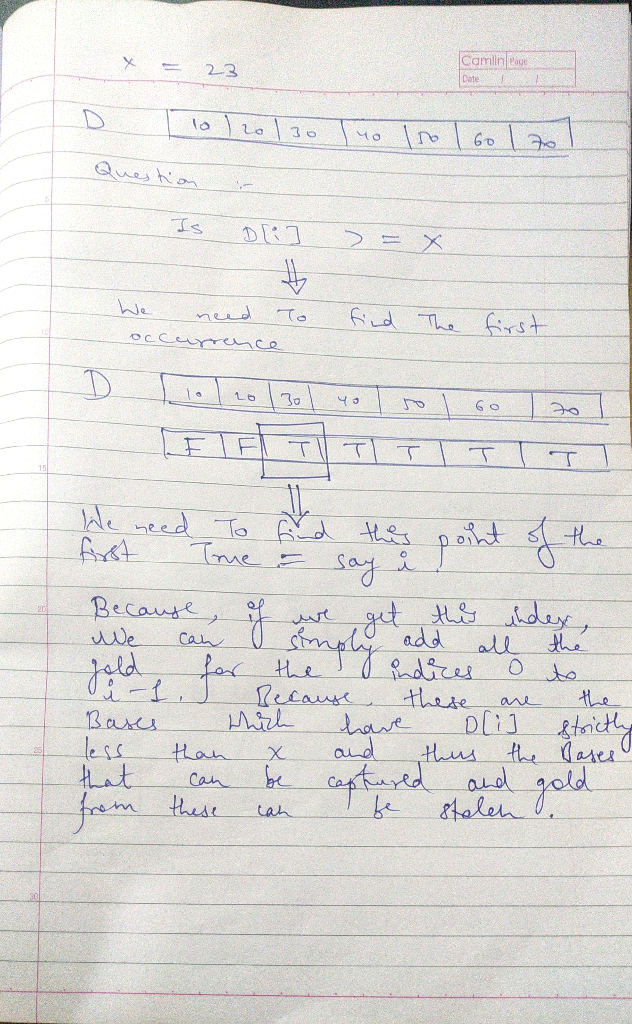 x = 23
Camlin Page
Date / /
D 10 20 30 40 50 60 70
Question :-
Is D[i] >= x
We need To find The first
occurrence
D 10 20 30 40 50 60 70
F F T T T T T
We need To find this point of the
first True = say i
Because, if we get this index,
we can simply add all the
gold for the indices 0 to
i-1. Because, these are the
Bases which have D[i] strictly
less than x and thus the Bases
that can be captured and gold
from these can be stolen.